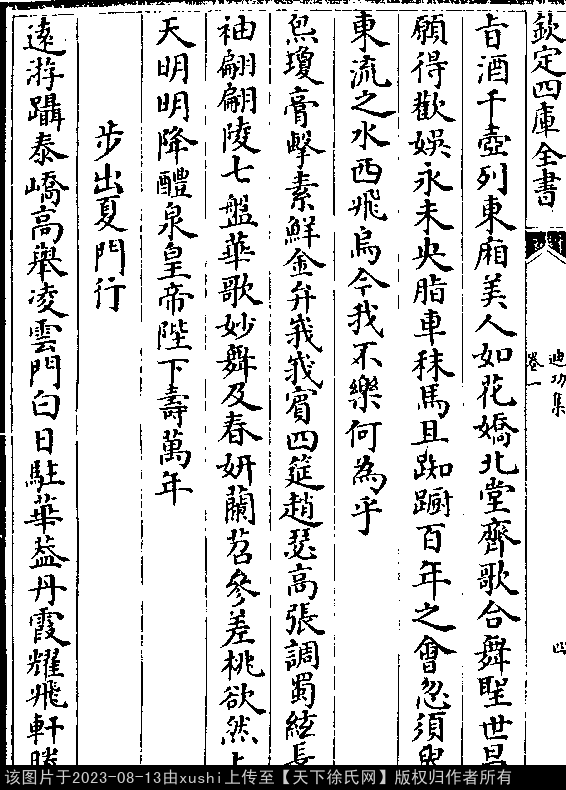 欽定四庫全書
迪功集
卷一
四
旨酒千壺列東廂美人如花嬌北堂齊歌合舞聖世昌
願得歡娛永未央脂車秣馬且踟蹰百年之會忽須臾
東流之水西飛烏今我不樂何為乎
炰瓊膏擊素鮮金弁峩峩賓四筵趙瑟高張調蜀絃長
袖翩翩陵七盤華歌妙舞及春妍蘭苕參差桃欲然上
天明明降醴泉皇帝陛下壽萬年
步出夏門行
遠游躡泰嶠高舉凌雲門白日駐華葢丹霞耀飛軒勝
该图片于2023-08-13由xushi上传至【天下徐氏网】版权归作者所有